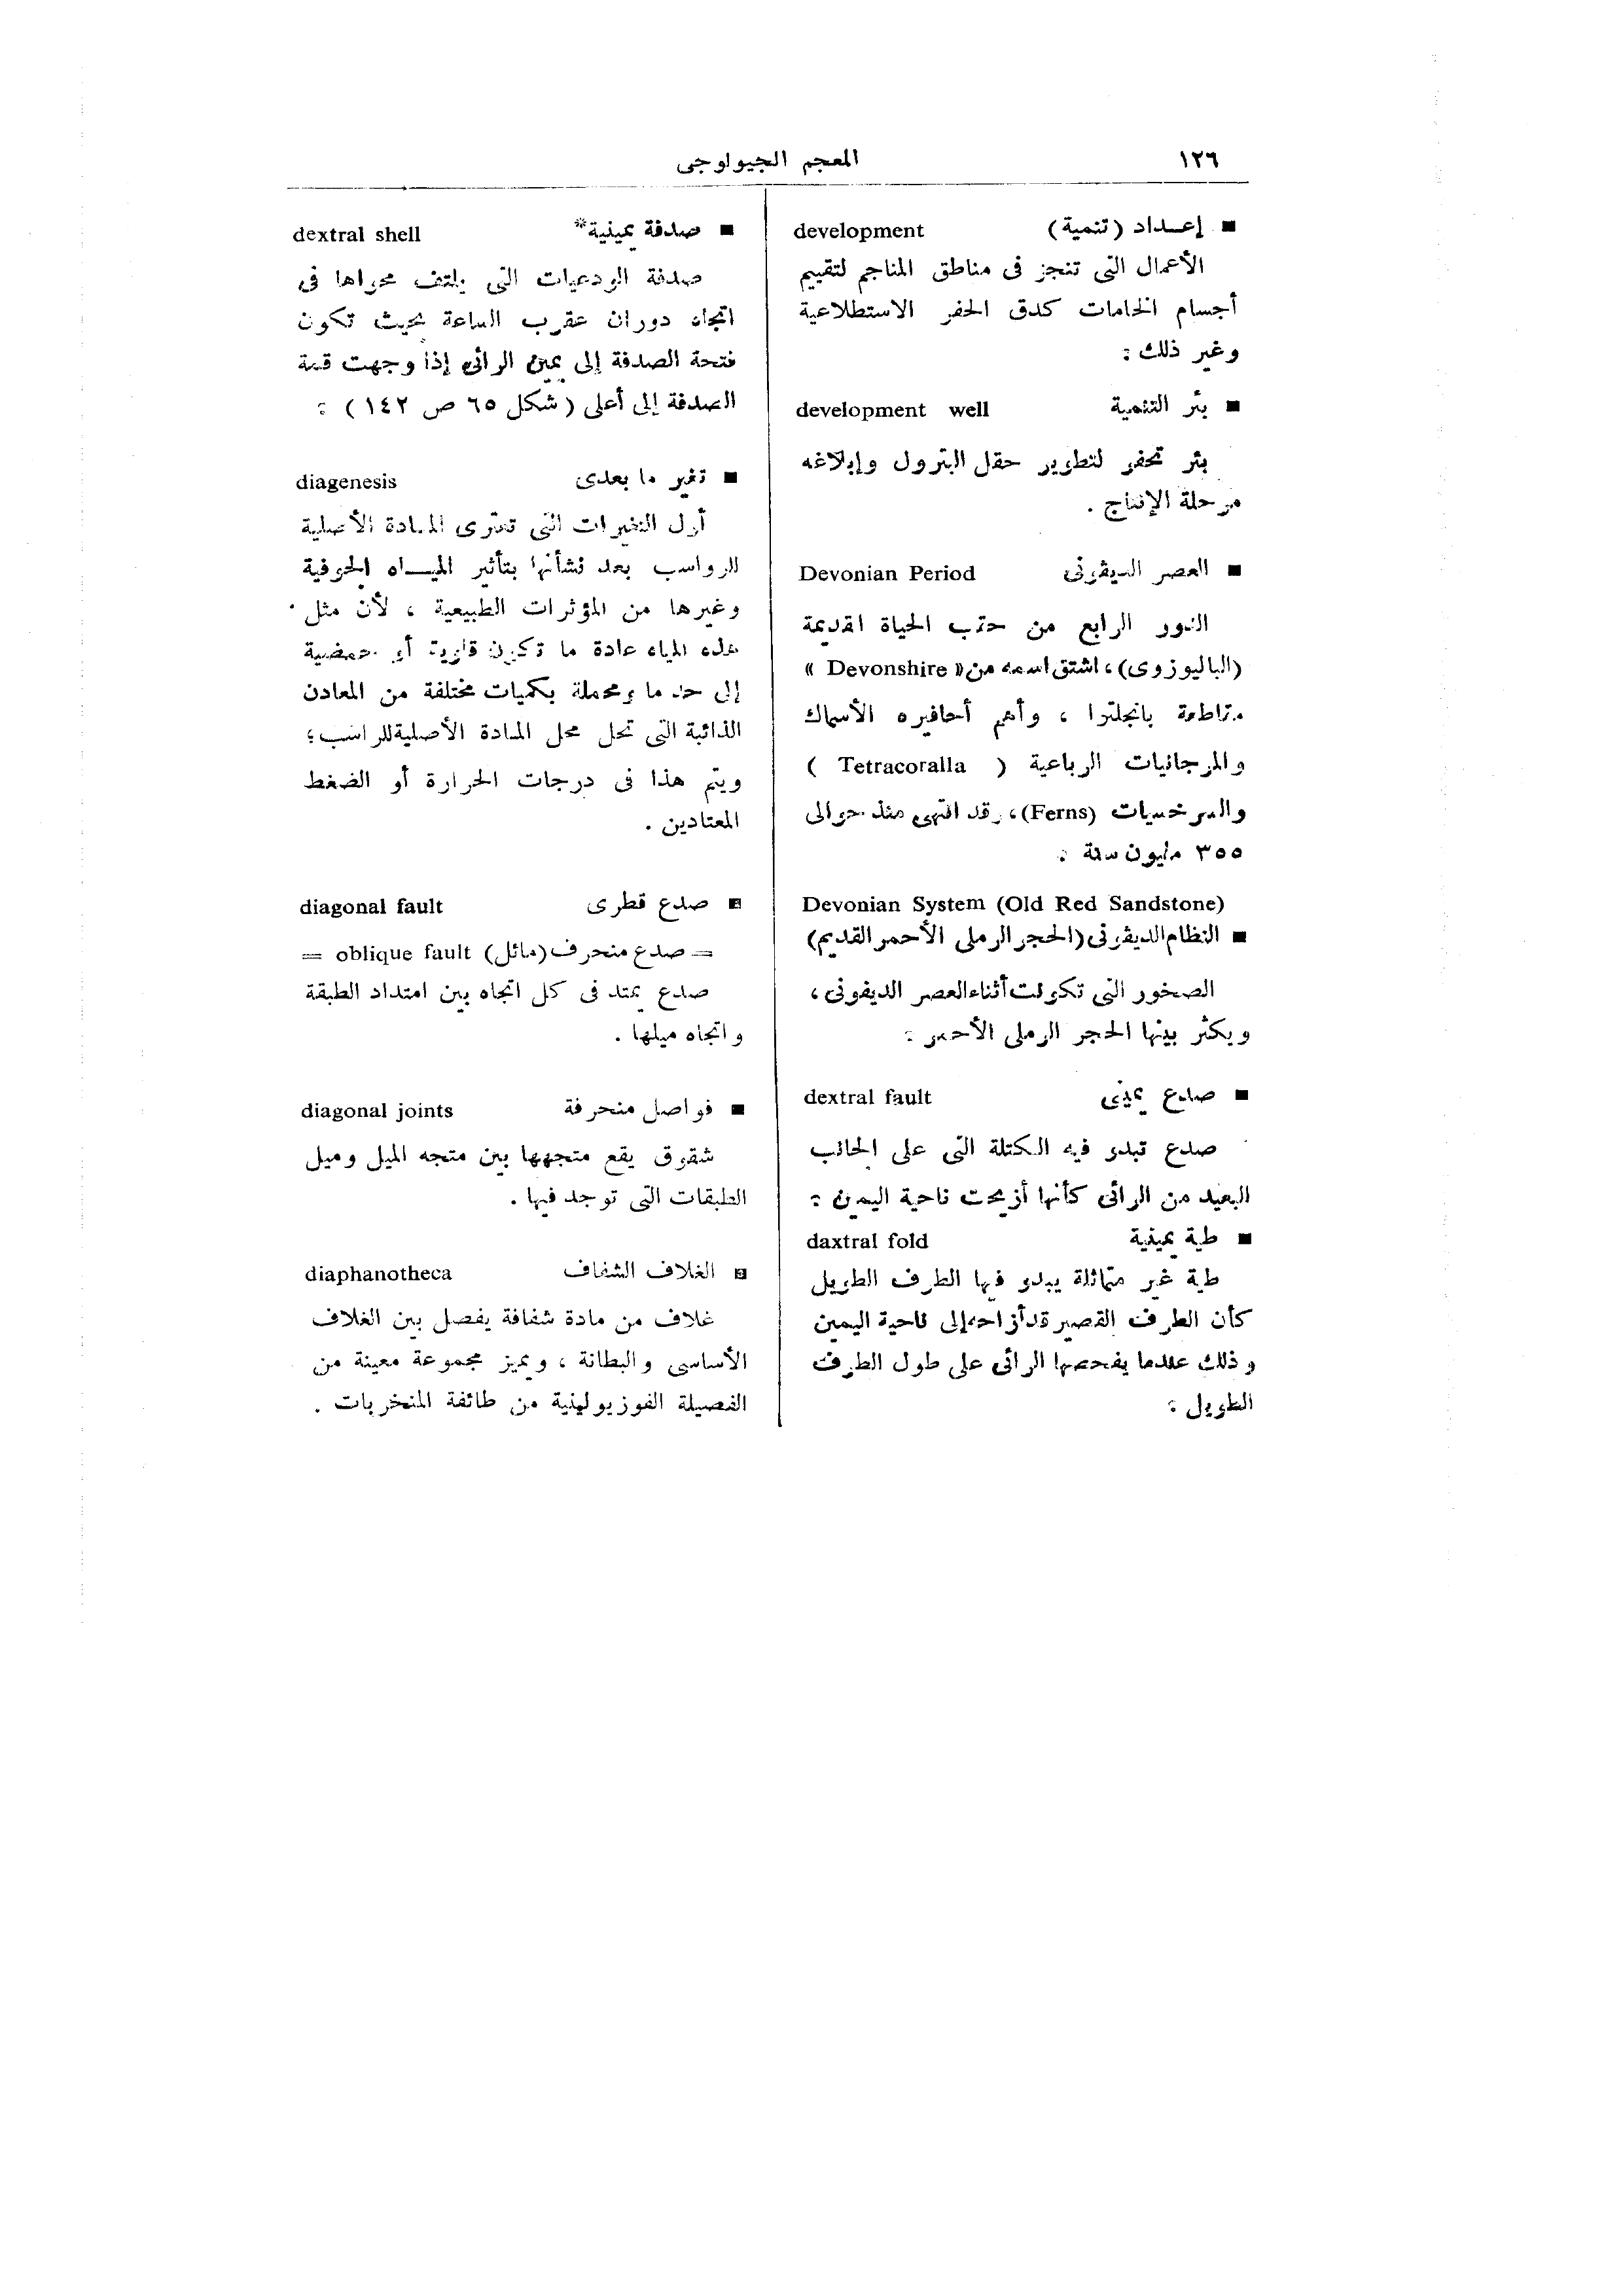 ١٢٦ المعجم الجيولوجى
■ إعـداد (تنمية) development
الأعمال التى تنجز فى مناطق المناجم لتقييم
أجسام الخامات كدق الحفر الاستطلاعية
وغير ذلك :
■ بئر التنمية development well
بئر تحفر لتطوير حقل البترول وإبلاغه
مرحلة الإنتاج .
■ العصر الديڤونى Devonian Period
الدور الرابع من حقب الحياة القديمة
(الباليوزوى)، اشتق اسمه من « Devonshire »
مقاطعة بانجلترا ، وأهم أحافيره الأسماك
والمرجانيات الرباعية ( Tetracoralla )
والسرخسيات (Ferns)، وقد انتهى منذ حوالى
٣٥٥ مليون سنة :
Devonian System (Old Red Sandstone)
■ النظام الديڤونى (الحجر الرملى الأحمر القديم)
الصخور التى تكونت أثناء العصر الديفونى ،
ويكثر بينها الحجر الرملى الأحمر :
■ صدع يمينى dextral fault
صدع تبدو فيه الكتلة التى على الجانب
البعيد من الرائى كأنها أزيحت ناحية اليمين :
■ طية يمينية daxtral fold
طية غير متماثلة يبدو فيها الطرف الطويل
كأن الطرف القصير قد أزاحه إلى ناحية اليمين
وذلك عندما يفحصها الرائى على طول الطرف
الطويل :
■ صدفة يمينية* dextral shell
صدفة الودعيات التى يلتف محراها فى
اتجاه دوران عقرب الساعة بحيث تكون
فتحة الصدفة إلى يمين الرائى إذا وجهت قمة
الصدفة إلى أعلى (شكل ٦٥ ص ١٤٢) :
■ تغير ما بعدى diagenesis
أول التغيرات التى تعترى المادة الأصلية
للرواسب بعد نشأتها بتأثير الميـاه الجوفية
وغيرها من المؤثرات الطبيعية ، لأن مثل
هذه المياه عادة ما تكون قلوية أو حمضية
إلى حد ما ومحملة بكميات مختلفة من المعادن
الذائبة التى تحل محل المادة الأصلية للراسب ؛
ويتم هذا فى درجات الحرارة أو الضغط
المعتادين .
■ صدع قطرى diagonal fault
= صدع منحرف (مائل) oblique fault =
صدع يمتد فى كل اتجاه بين امتداد الطبقة
واتجاه ميلها .
■ فواصل منحرفة diagonal joints
شقوق يقع متجهها بين متجه الميل وميل
الطبقات التى توجد فيها .
■ الغلاف الشفاف diaphanotheca
غلاف من مادة شفافة يفصل بين الغلاف
الأساسى والبطانة ، ويميز مجموعة معينة من
الفصيلة الفوزيولينية من طائفة المنخربات .